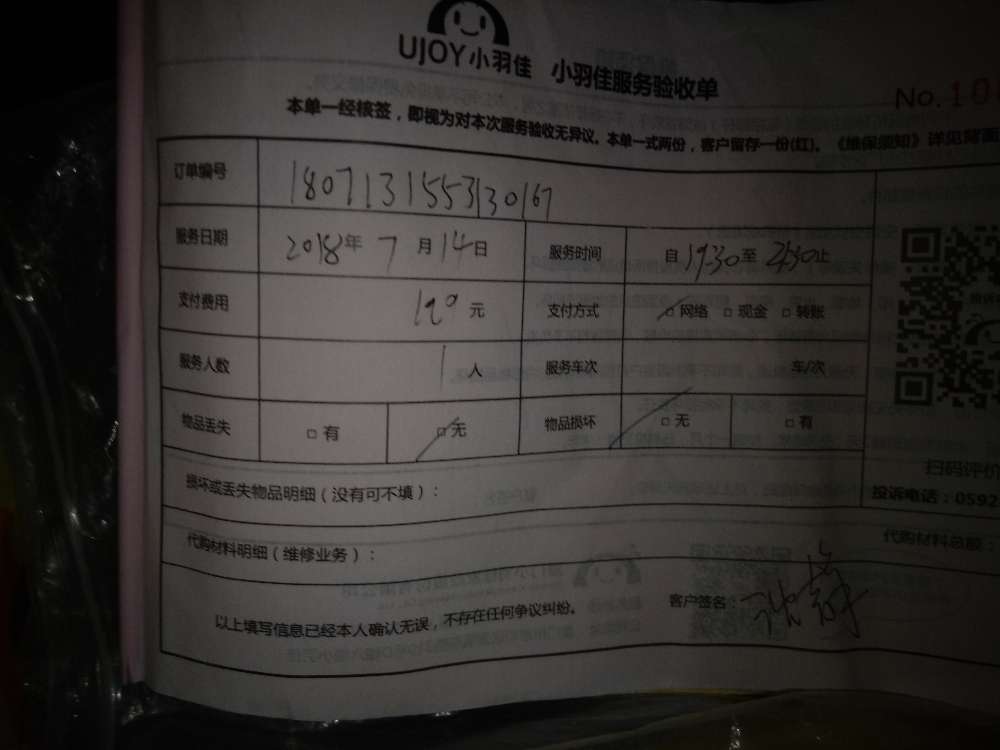 UJOY小羽佳 小羽佳服务验收单
No.10
本单一经核签，即视为对本次服务验收无异议。本单一式两份，客户留存一份(红)。《维保须知》详见背面
订单编号 180713155313067
服务日期 2018年 7月14日 服务时间 自19:30至 止
支付费用 120元 支付方式 □网络 □现金 □转账
服务人数 1人 服务车次 车/次
物品丢失 □有 □无 物品损坏 □无 □有
损坏或丢失物品明细（没有可不填）：
扫码评价
投诉电话：0592
代购材料明细（维修业务）：
代购材料总额：
以上填写信息已经本人确认无误，不存在任何争议纠纷。
客户签名：